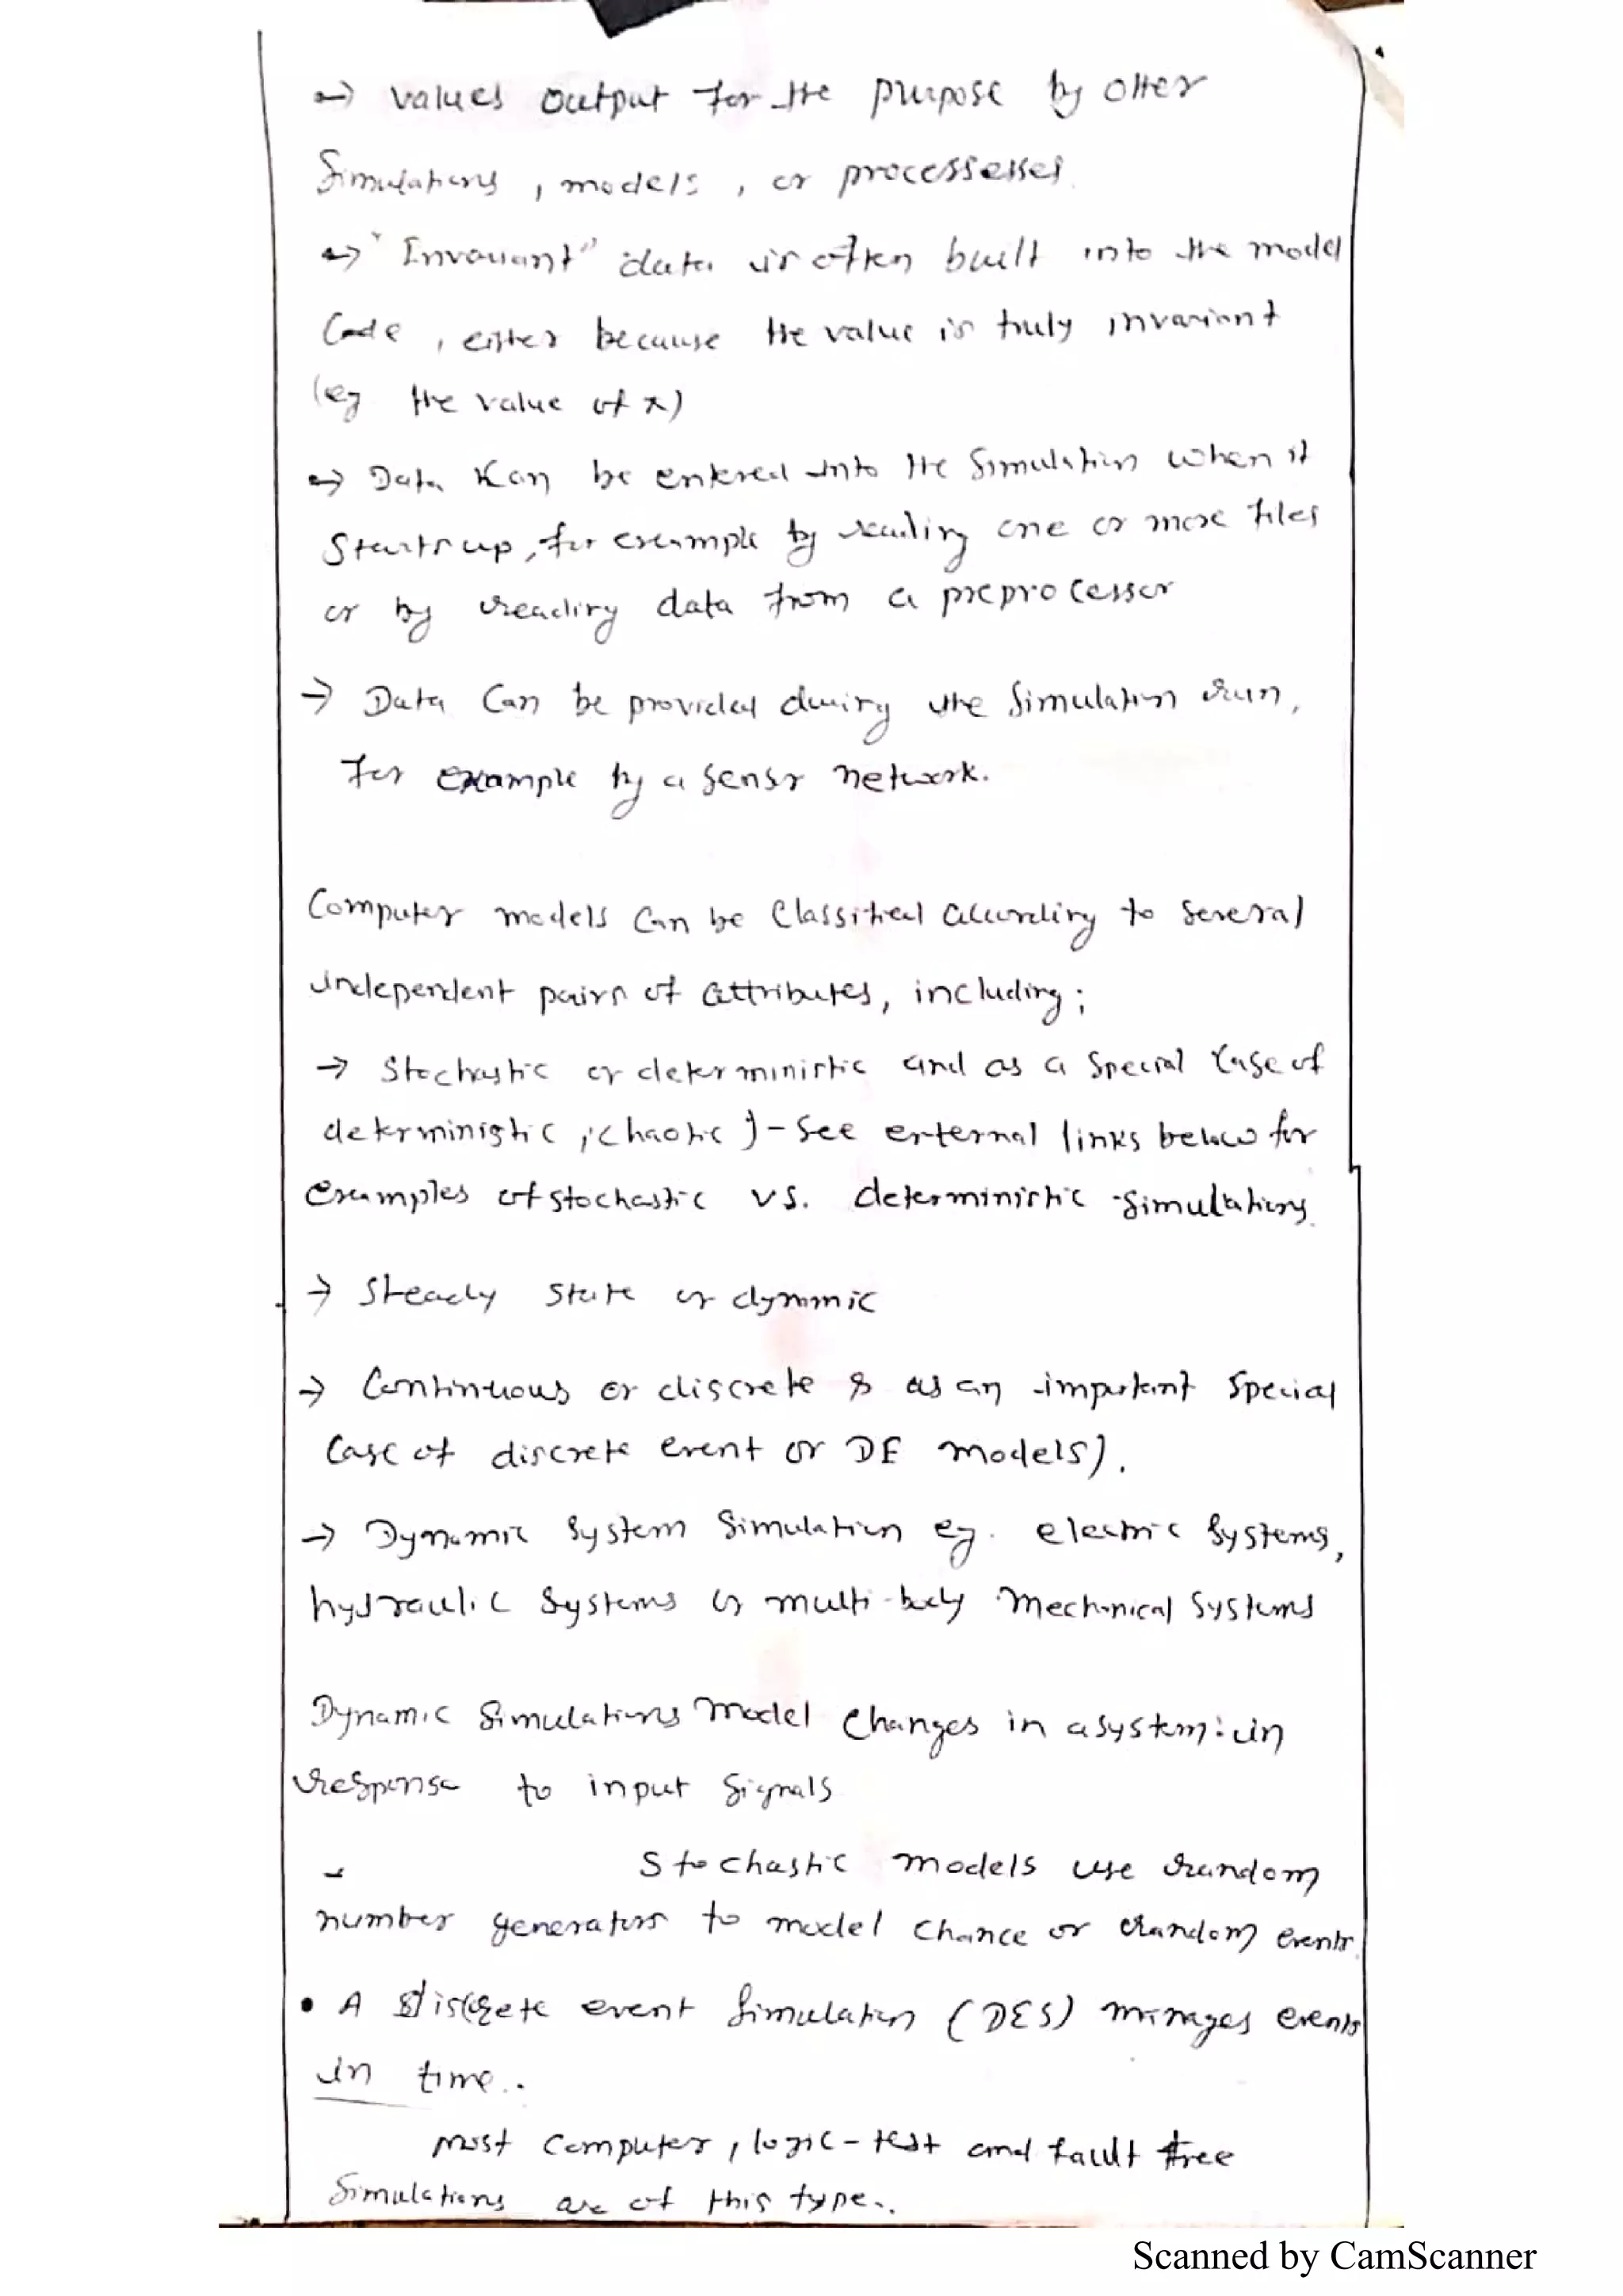 → values output for the purpose by other
Simulations, models, or processesses
→ "Invariant" data is often built into the model
Code, either because the value is truly invariant
(eg the value of π)
→ Data Kan be entered into the Simulation when it
Starts up, for example by reading one or more files
or by reading data from a preprocessor
→ Data Can be provided during the Simulation run,
for example by a Sensr network.
Computer models Can be Classified according to Several
independent pairs of attributes, including;
→ Stochastic or deterministic and as a Special Case of
deterministic, chaotic) - See external links below for
examples of stochastic vs. deterministic simulations.
→ Steady State or dynmic
→ Continuous or discrete & as an important Special
Case of discrete event or DE models).
→ Dynamic System Simulation eg. electric Systems,
hydraulic Systems or multi-body Mechanical Systems
Dynamic Simulations Model Changes in a system: in
response to input Signals
- Stochastic models use random
number generators to model Chance or random events
• A discrete event Simulation (DES) manages events
in time..
most Computer, logic-test and fault tree
Simulations are of this type..
Scanned by CamScanner